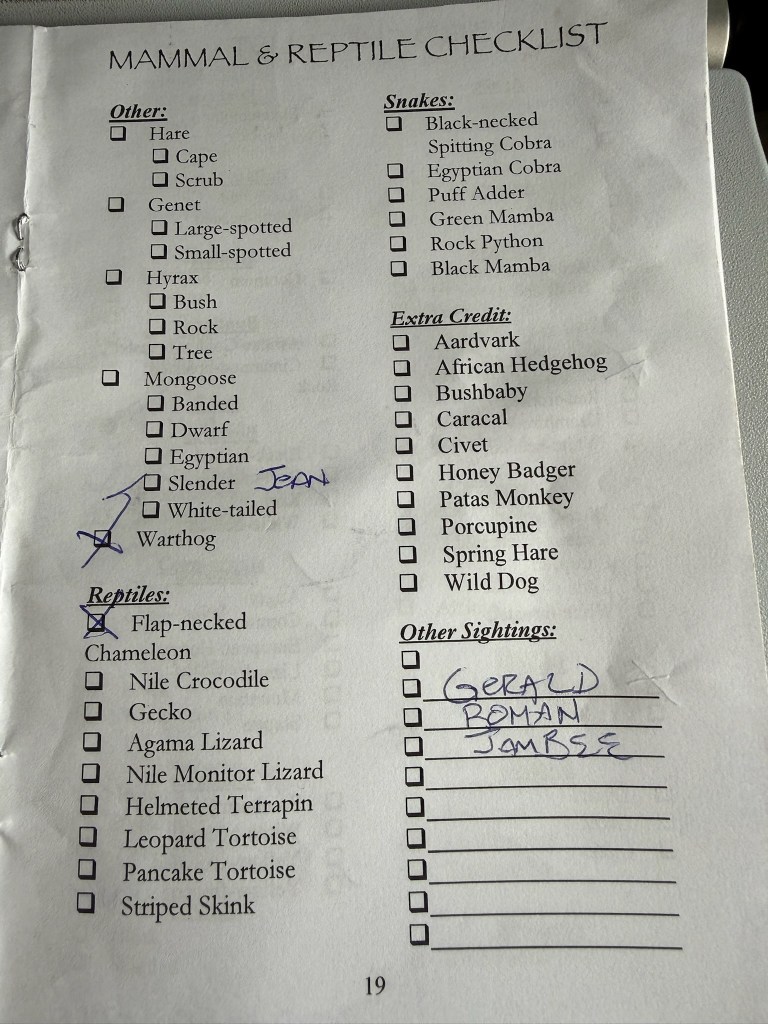 MAMMAL & REPTILE CHECKLIST
Other:
Hare
Cape
Scrub
Genet
Large-spotted
Small-spotted
Hyrax
Bush
Rock
Tree
Mongoose
Banded
Dwarf
Egyptian
Slender JEAN
White-tailed
Warthog
Reptiles:
Flap-necked
Chameleon
Nile Crocodile
Gecko
Agama Lizard
Nile Monitor Lizard
Helmeted Terrapin
Leopard Tortoise
Pancake Tortoise
Striped Skink
Snakes:
Black-necked
Spitting Cobra
Egyptian Cobra
Puff Adder
Green Mamba
Rock Python
Black Mamba
Extra Credit:
Aardvark
African Hedgehog
Bushbaby
Caracal
Civet
Honey Badger
Patas Monkey
Porcupine
Spring Hare
Wild Dog
Other Sightings:
GERALD
ROMAN
JAMBEE
19